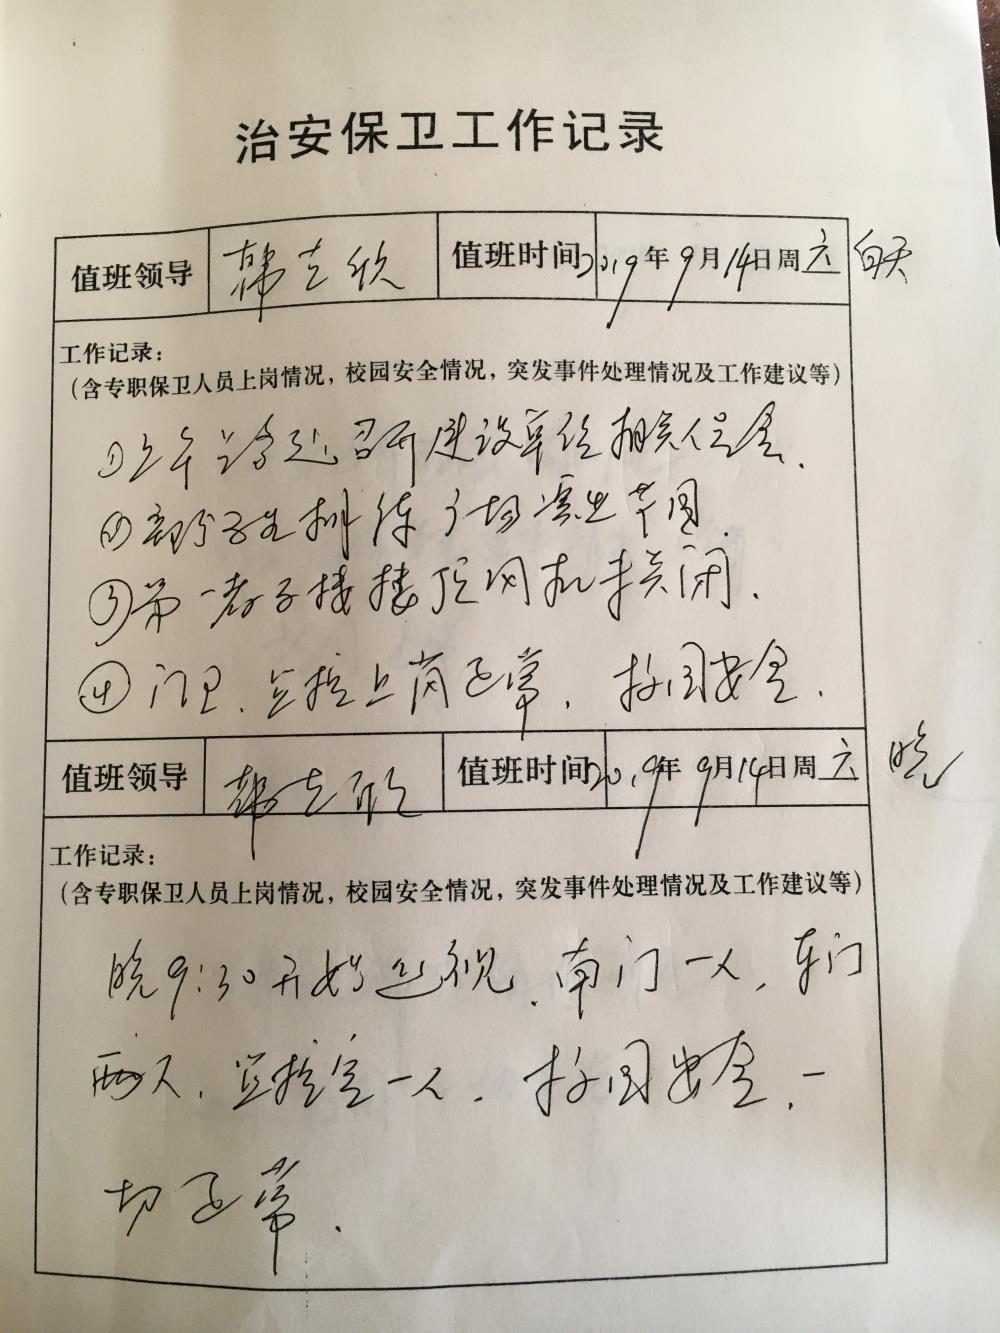 治安保卫工作记录
值班领导 韩立欣 值班时间 2019年9月14日周六 白天
工作记录：
（含专职保卫人员上岗情况，校园安全情况，突发事件处理情况及工作建议等）
①上午 召开建设单位相关 会.
②部分学生排练广场演出节目.
③第一教学楼楼顶风机未关闭.
④门卫、监控上岗正常, 校园安全.
值班领导 韩立欣 值班时间 2019年9月14日周六 晚
工作记录：
（含专职保卫人员上岗情况，校园安全情况，突发事件处理情况及工作建议等）
晚9:30开始巡视, 南门一人, 东门
两人, 监控室一人, 校园安全, 一
切正常.